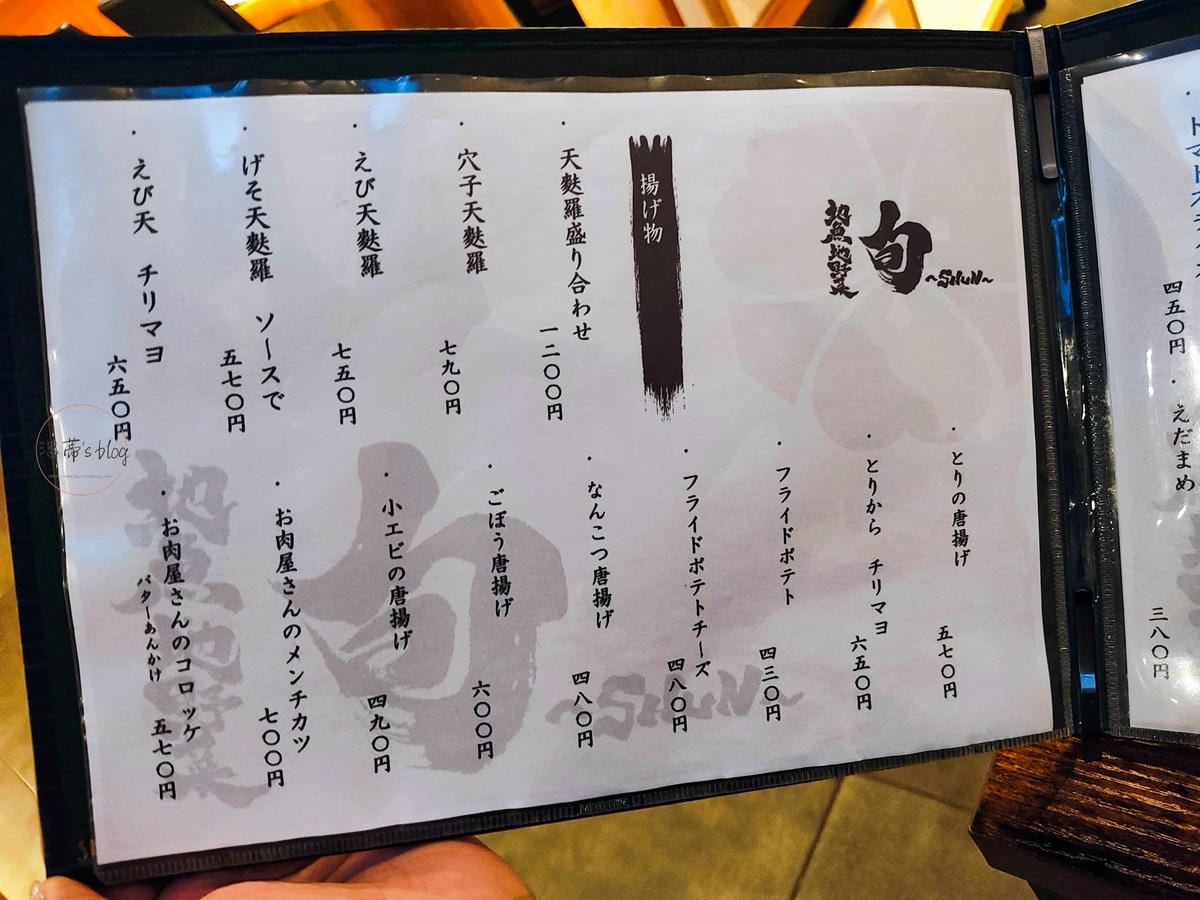 旬
~SHUN~
地魚地野菜
揚げ物
・天麩羅盛り合わせ 一二〇〇円
・穴子天麩羅 七九〇円
・えび天麩羅 七五〇円
・げそ天麩羅 ソースで 五七〇円
・えび天 チリマヨ 六五〇円
・とりの唐揚げ 五七〇円
・とりから チリマヨ 六五〇円
・フライドポテト 四三〇円
・フライドポテトチーズ 四八〇円
・なんこつ唐揚げ 四八〇円
・ごぼう唐揚げ 六〇〇円
・小エビの唐揚げ 四九〇円
・お肉屋さんのメンチカツ 七〇〇円
・お肉屋さんのコロッケ
バターあんかけ 五七〇円
四五〇円
・えだまめ 三八〇円
旬
~SHUN~
's blog